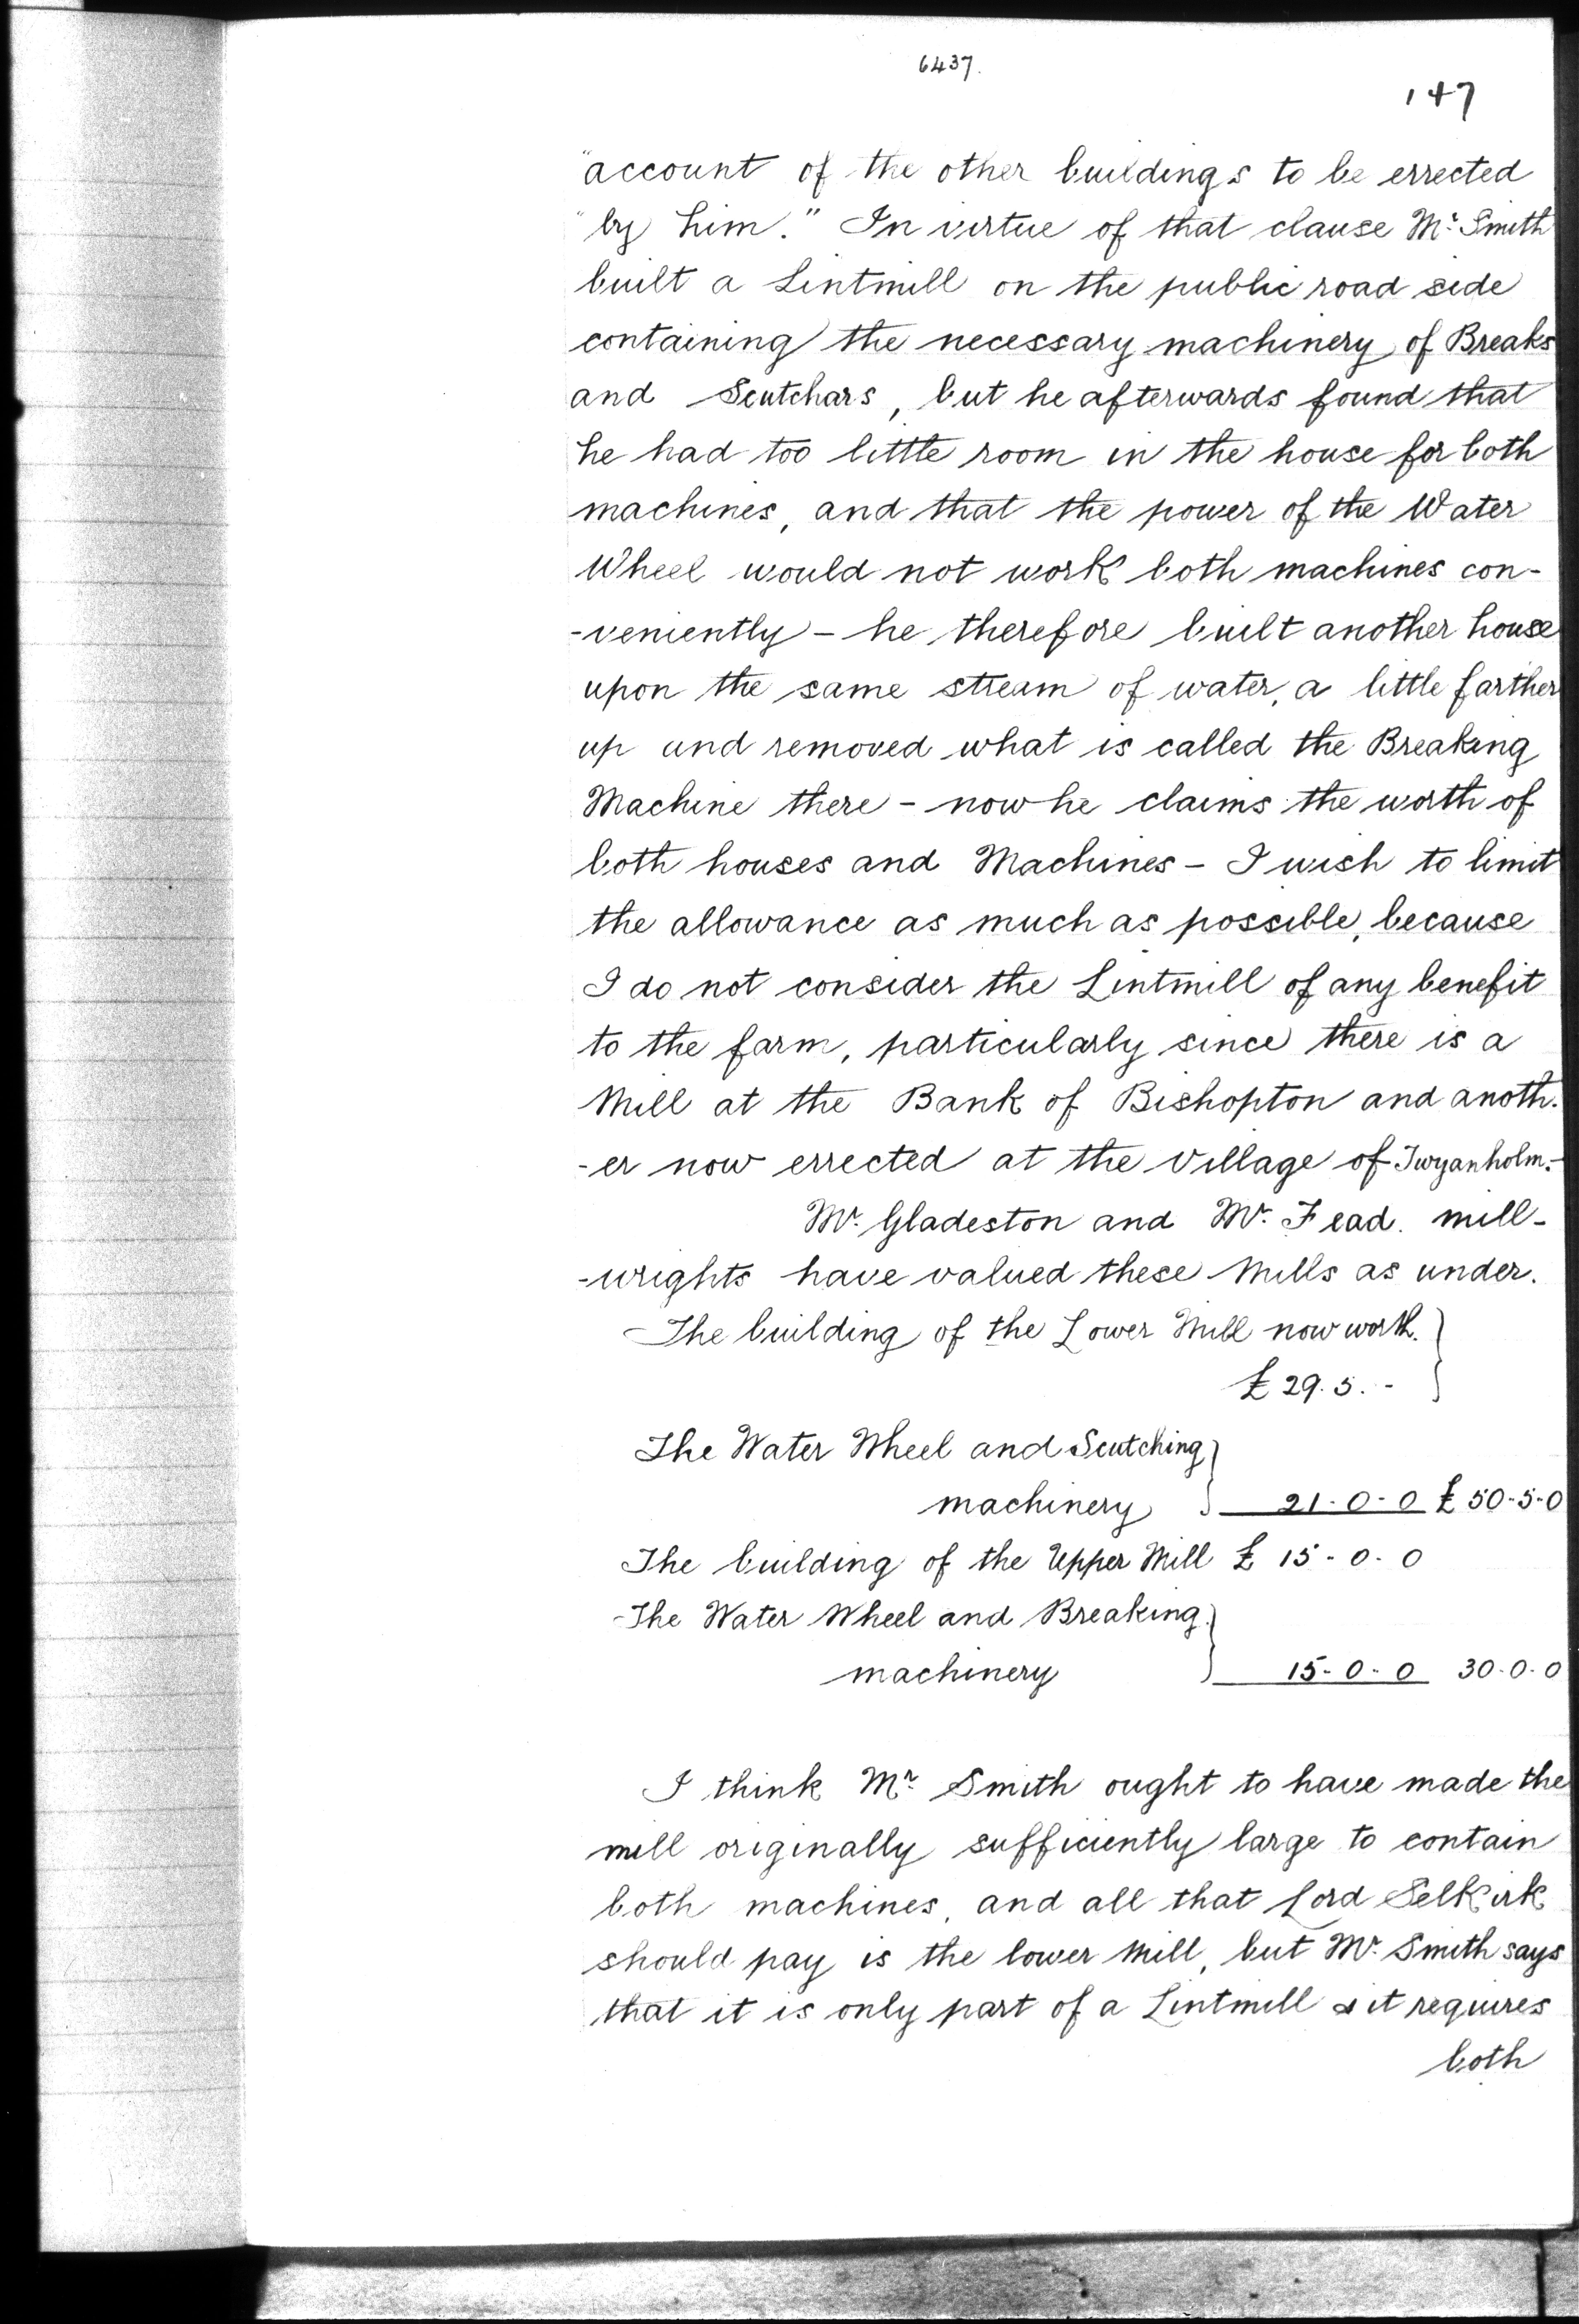 6437.
147
"account of the other buildings to be errected
"by him." In virtue of that clause Mr. Smith
built a Lintmill on the public road side
containing the necessary machinery of Breaks
and Scutchars, but he afterwards found that
he had too little room in the house for both
machines, and that the power of the Water
Wheel would not work both machines con-
-veniently - he therefore built another house
upon the same stream of water, a little farther
up and removed what is called the Breaking
Machine there - now he claims the worth of
both houses and Machines - I wish to limit
the allowance as much as possible, because
I do not consider the Lintmill of any benefit
to the farm, particularly since there is a
Mill at the Bank of Bishopton and anoth-
-er now errected at the village of Twyanholm.-
Mr. Gladeston and Mr. Fead. mill-
-wrights have valued these Mills as under.
The building of the Lower Mill now worth. }
£ 29. 5. - }
The Water Wheel and Scutching }
machinery } 21-0-0 £ 50-5-0
The building of the Upper Mill £ 15-0-0
The Water Wheel and Breaking }
machinery } 15-0-0 30-0-0
I think Mr. Smith ought to have made the
mill originally sufficiently large to contain
both machines, and all that Lord Selkirk
should pay is the lower Mill, but Mr. Smith says
that it is only part of a Lintmill & it requires
both